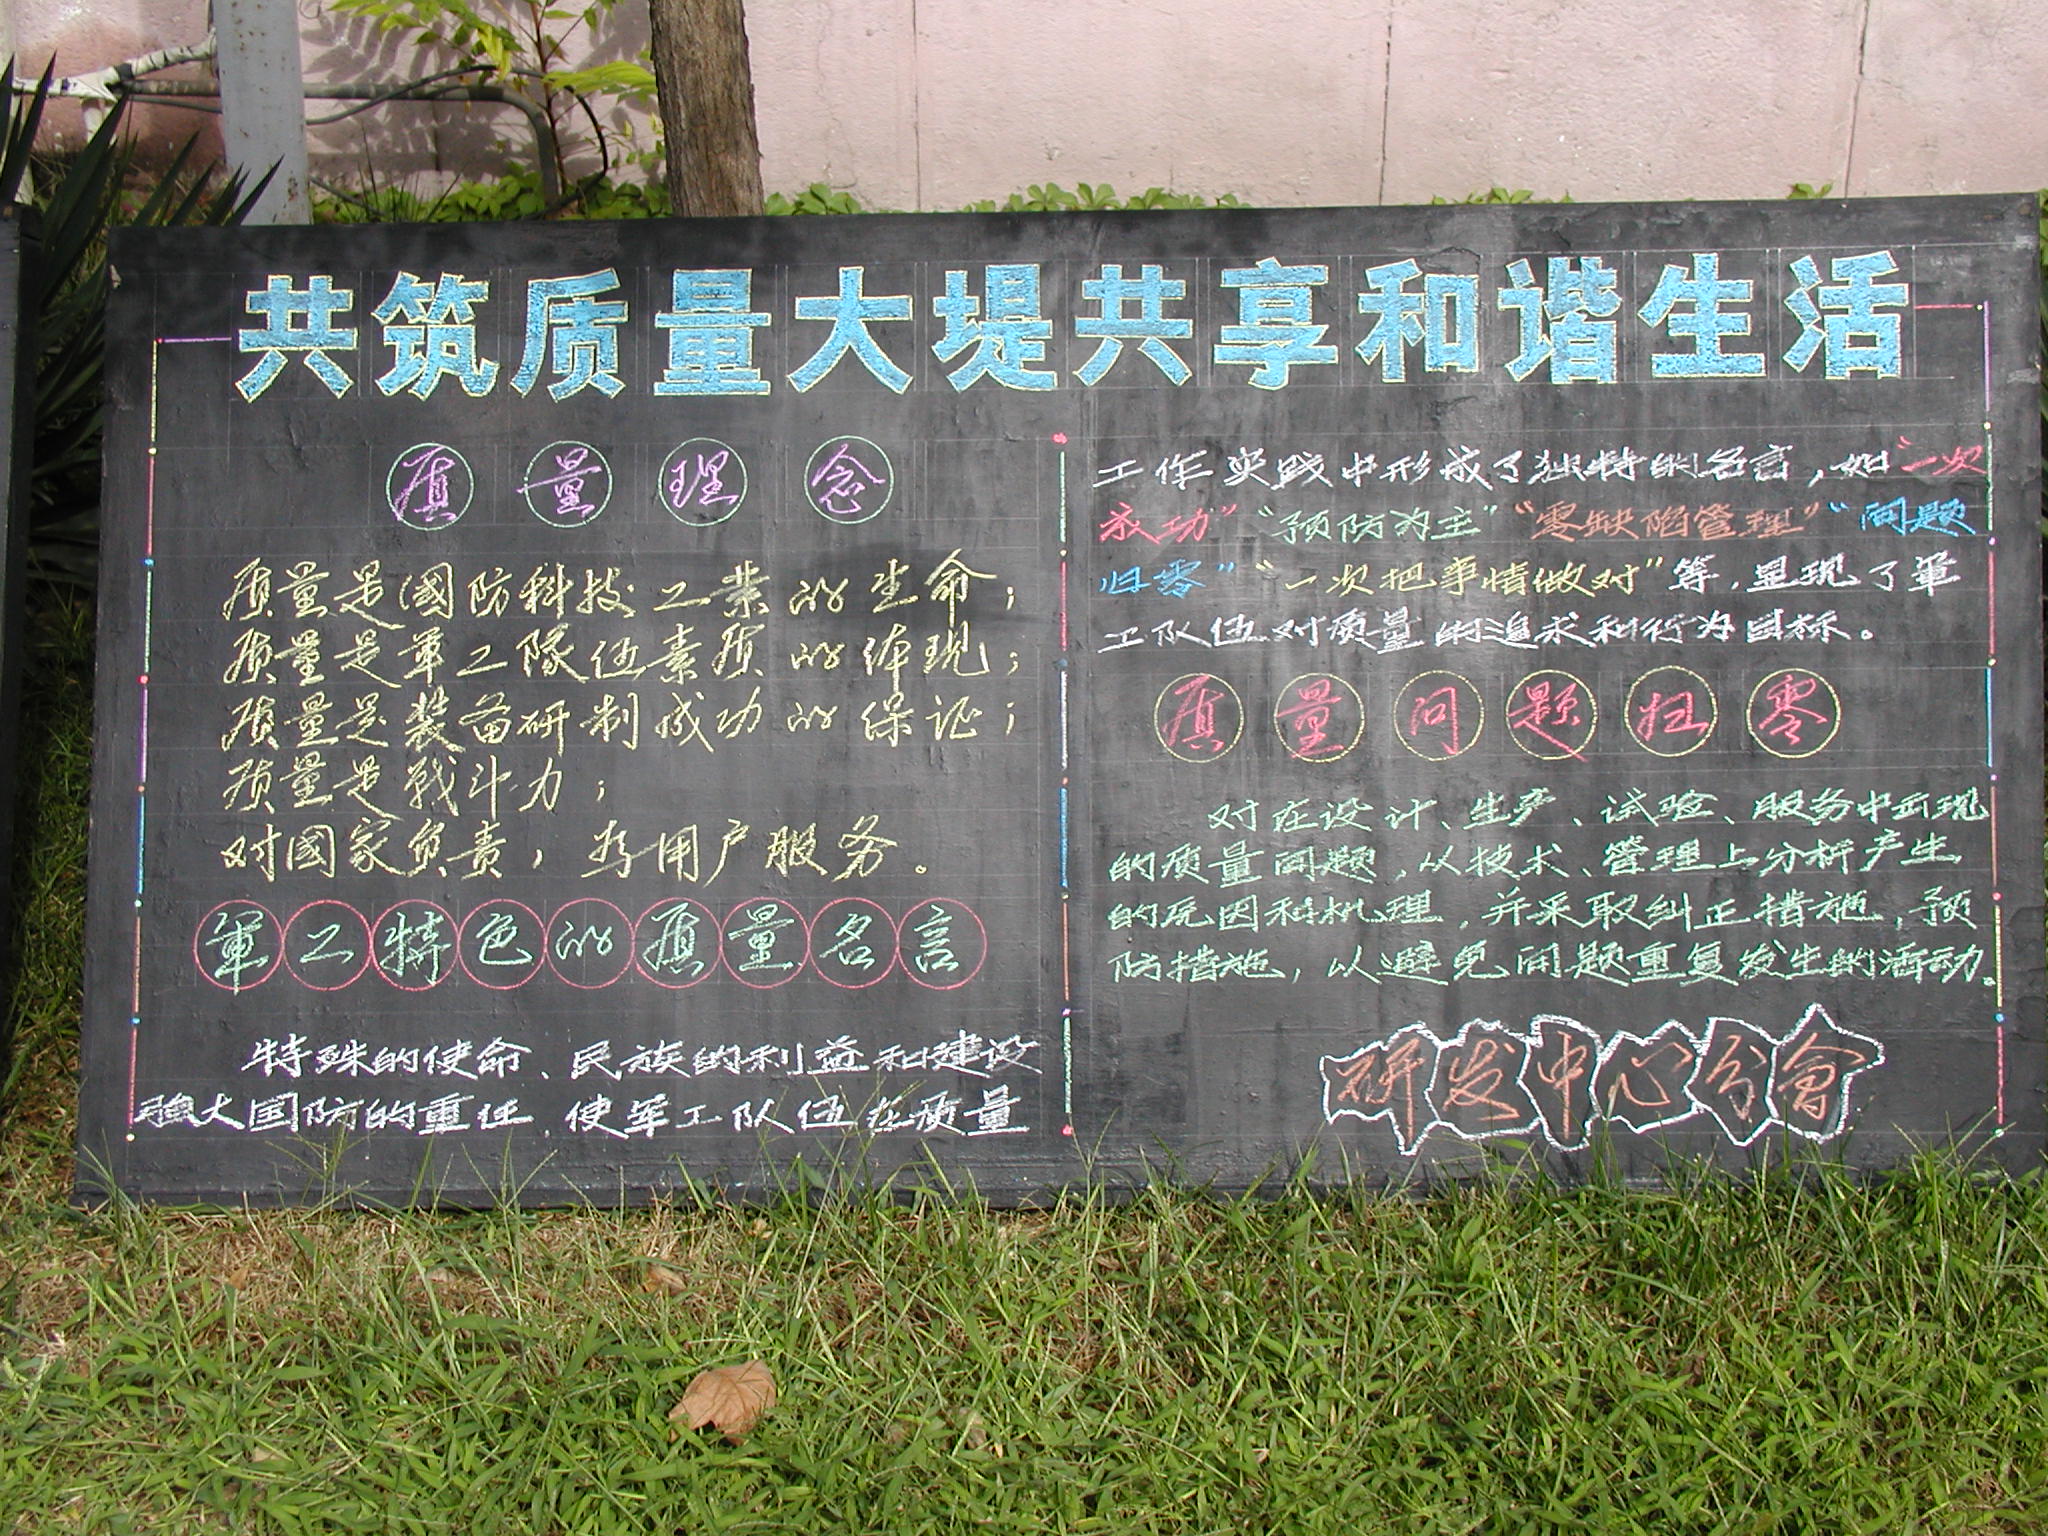 共筑质量大堤共享和谐生活
质量理念
质量是國防科技工業的生命；
质量是軍工隊伍素质的体现；
质量是装备研制成功的保证；
质量是战斗力；
对國家负责，为用户服务。
軍工特色的质量名言
特殊的使命、民族的利益和建设
强大国防的重任，使军工队伍在质量
工作实践中形成了独特的名言，如“一次
成功”“预防为主”“零缺陷管理”“问题
归零”“一次把事情做对”等，显现了軍
工队伍对质量的追求和行为目标。
质量问题归零
对在设计、生产、试验、服务中出现
的质量问题，从技术、管理上分析产生
的原因和机理，并采取纠正措施，预
防措施，以避免问题重复发生的活动。
研发中心分會